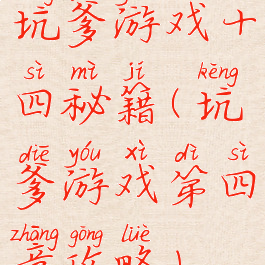 坑爹游戏十
sì mì jí kēng
四秘籍(坑
diē yóu xì dì sì
爹游戏第四
zhāng gōng lüè
章攻略)